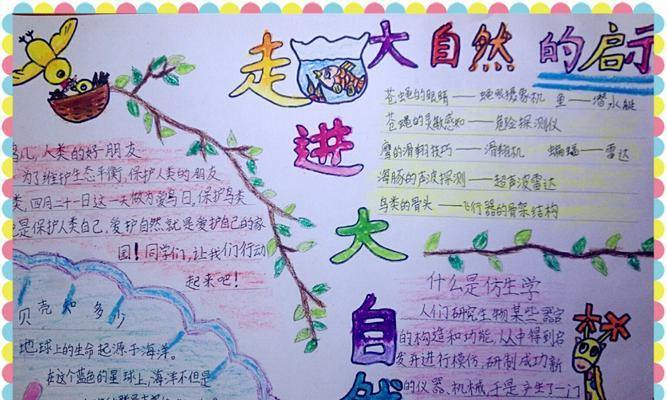 走进大自然
大自然的启示
苍蝇的眼睛——蝇眼摄象机 鱼——潜水艇
苍蝇的灵敏感知——危险探测仪
鹰的滑翔技巧——滑翔机 蝙蝠——雷达
海豚的声波探测——超声波雷达
鸟类的骨头——飞行器的骨架结构
鸟儿,人类的好朋友
为了维护生态平衡,保护人类的朋友
类,四月二十一日这一天做为爱鸟日,保护鸟类
是保护人类自己,爱护自然就是爱护自己的家
园!同学们,让我们行动
起来吧!
什么是仿生学
人们研究生物某些器官
的构造和功能,从中得到启
发并进行模仿,研制成功新
的仪器、机械,于是产生了一门
贝壳知多少
地球上的生命起源于海洋。
在这个蓝色的星球上,海洋不但是